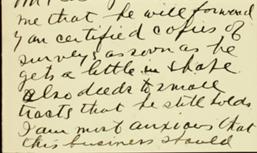 me that he will forward
you certified copies of
surveys as soon as he
gets a little in shape
also deeds to small
tracts that he still holds
I am most anxious that
this business should